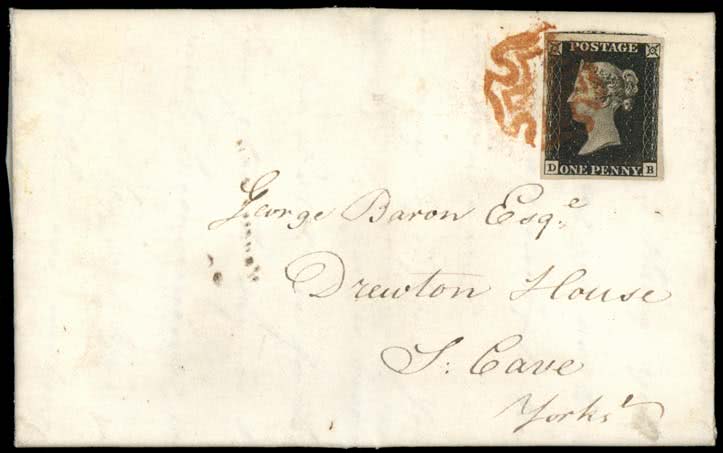 POSTAGE
D ONE PENNY B
George Baron Esqe
Drewton House
S: Cave
Yorksr